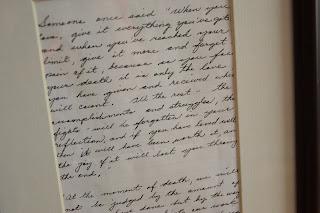 Someone once said "When you
love, give it everything you've got
and when you've reached your
limit, give it more and forget
pain of it, because as you face
your death it is only the love
you have given and received which
will count. All the rest - the
accomplishments and struggles, the
fights - will be forgotten in your
reflection, and if you have loved well
then it will have been worth it, and
the joy of it will last you through
the end.
"At the moment of death, we will
not be judged by the amount of
have done but by the